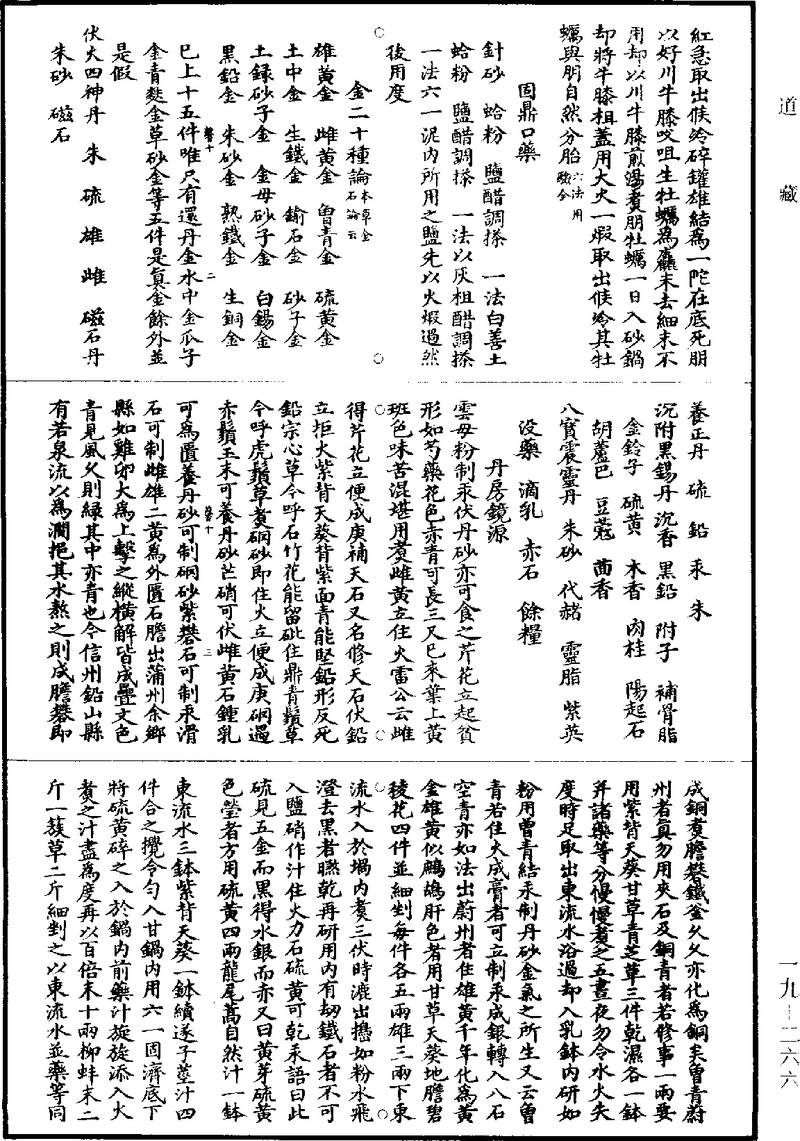 道藏
紅急取出候冷碎鑵雄結為一陀在底死朋
以好川牛膝㕮咀生牡蠣為麤末去細末不
用却以川牛膝煎湯煮朋牡蠣一日入砂鍋
却將牛膝柤蓋用大火一煅取出候冷其牡
蠣與朋自然分胎六法用
驗令
固鼎口藥
針砂 蛤粉 鹽醋調搽 一法白善土
蛤粉 鹽醋調搽 一法以灰柤醋調搽
一法六一泥內所用之鹽先以火煅過然
後用度
金二十種論本草金
石論云
雄黃金 雌黃金 曾青金 硫黃金
土中金 生鐵金 鍮石金 砂子金
土録砂子金 金母砂子金 白錫金
黑鉛金 朱砂金 熟鐵金 生銅金
已上十五件唯只有還丹金水中金瓜子
金青麩金草砂金等五件是真金餘外並
是假
伏火四神丹 朱 硫 雄 雌 磁石丹
朱砂 磁石
養正丹 硫 鉛 汞 朱
沉附黑錫丹 沉香 黑鉛 附子 補骨脂
金鈴子 硫黃 木香 肉桂 陽起石
胡蘆巴 豆蔻 茴香
八寶震靈丹 朱砂 代赭 靈脂 紫英
沒藥 滴乳 赤石 餘糧
丹房鏡源
雲母粉制汞伏丹砂亦可食之芹花立起貧
形如芍藥花色赤青可長三尺已來葉上黃
班色味苦混堪用煮雌黃立住火雷公云雌
得芹花立便成庚補天石又名修天石伏鉛
立拒火紫背天葵背紫面青能堅鉛形反死
鉛宗心草今呼石竹花能留砒住鼎青鬚草
今呼虎鬚草煮硇砂即住火立便成庚硇遇
赤鬚玉末可養丹砂芒硝可伏雌黃石鍾乳
可為匱養丹砂可制硇砂紫礬石可制汞滑
石可制雌雄二黃為外匱石膽出蒲州余鄉
縣如雞卵大為上擊之縱橫解皆成疊文色
青見風久則緑其中亦青也今信州鉛山縣
有若泉流以為澗挹其水熬之則成膽礬即
成銅煮膽礬鐵釜久久亦化為銅矣曾青蔚
州者真勿用夾石及銅青者若修事一兩要
用紫背天葵甘草青芝草三件乾濕各一鉢
并諸藥等分慢慢煮之五晝夜勿令水火失
度時足取出東流水浴過却入乳鉢內研如
粉用曾青結汞制丹砂金氣之所生又云曾
青若住火成膏者可立制汞成銀轉入八石
空青亦如法出蔚州者住雄黃千年化為黃
金雄黃似鷓鴣肝色者用甘草天葵地膽碧
稜花四件並細剉每件各五兩雄三兩下東
流水入於堝內煮三伏時漉出擣如粉水飛
澄去黑者曬乾再研用內有劫鐵石者不可
入鹽硝作汁住火力石硫黃可乾汞語曰此
硫見五金而黑得水銀而赤又曰黃芽硫黃
色瑩者方用硫黃四兩龍尾蒿自然汁一鉢
東流水三鉢紫背天葵一鉢續遂子莖汁四
件合之攪令勻入甘鍋內用六一固濟底下
將硫黃碎之入於鍋內前藥汁旋旋添入火
煮之汁盡為度再以百倍末十兩柳蚌末二
斤一簇草二斤細剉之以東流水並藥等同
一九-二六六